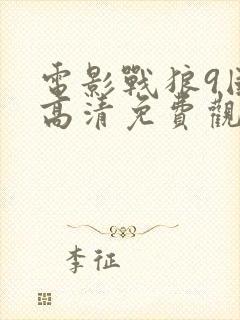 電影戰狼9國
高清免費觀
李征